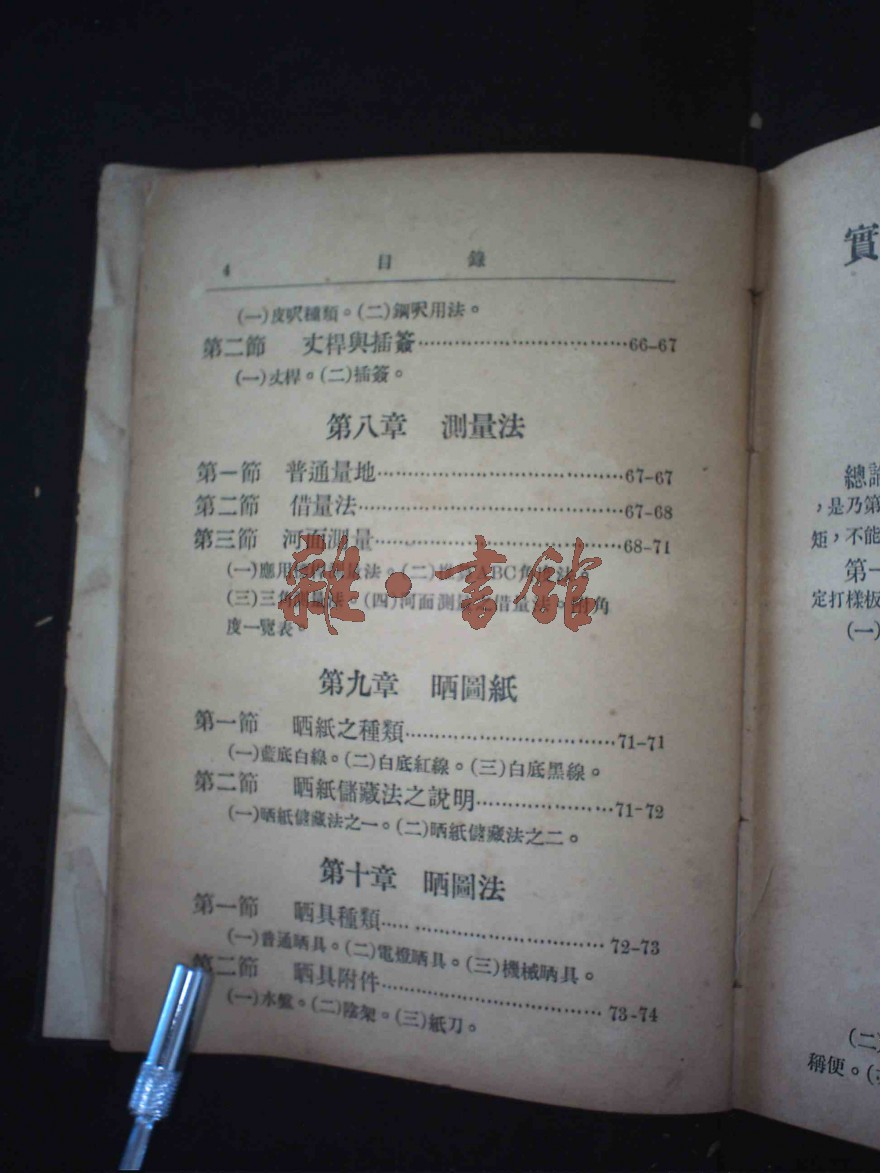 4 目 錄
(一)皮呎種類。(二)鋼呎用法。
第二節 丈桿與插簽……………………………66-67
(一)丈桿。(二)插簽。
第八章 測量法
第一節 普通量地……………………………67-67
第二節 借量法……………………………67-68
第三節 河面測量……………………………68-71
(一)應用 量法。(二) ABC角度法。
(三)三角測量法。(四)河面測量 借量法。附角
度一覽表。
第九章 晒圖紙
第一節 晒紙之種類……………………………71-71
(一)藍底白線。(二)白底紅線。(三)白底黑線。
第二節 晒紙儲藏法之說明…………………71-72
(一)晒紙儲藏法之一。(二)晒紙儲藏法之二。
第十章 晒圖法
第一節 晒具種類……………………………72-73
(一)普通晒具。(二)電燈晒具。(三)機械晒具。
第二節 晒具附件……………………………73-74
(一)水盤。(二)陰架。(三)紙刀。
雜·書館
實
總論
,是乃第
矩,不能
第一
定打樣板
(一)
(二)
稱便。(